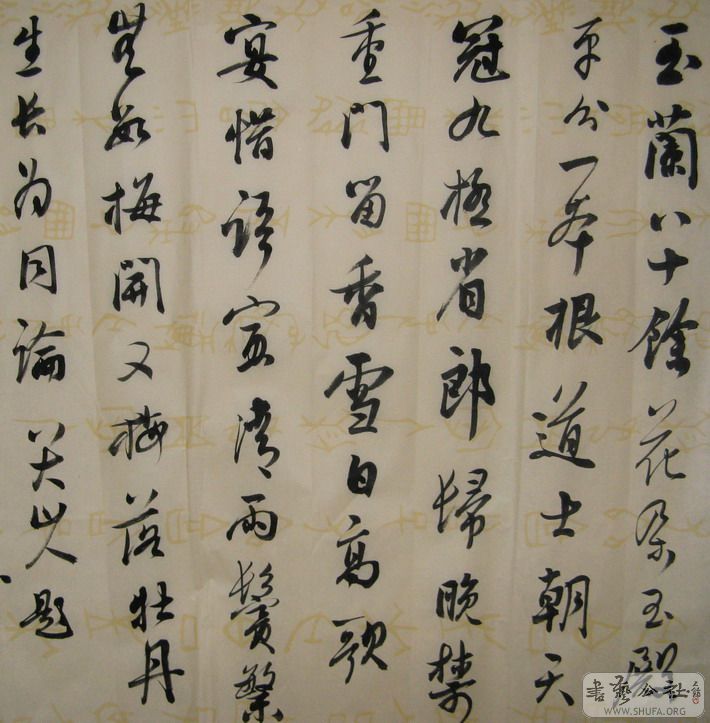 玉蘭八十餘花朵玉
平分一本根道士朝天
冠九極省郎歸晚禁
重門留香雪白高歌
宴惜宜清兩鬢繁
無數梅開又梅落牡丹
生长为同論 八大山人題
書藝公社
WWW.SHUFA.ORG